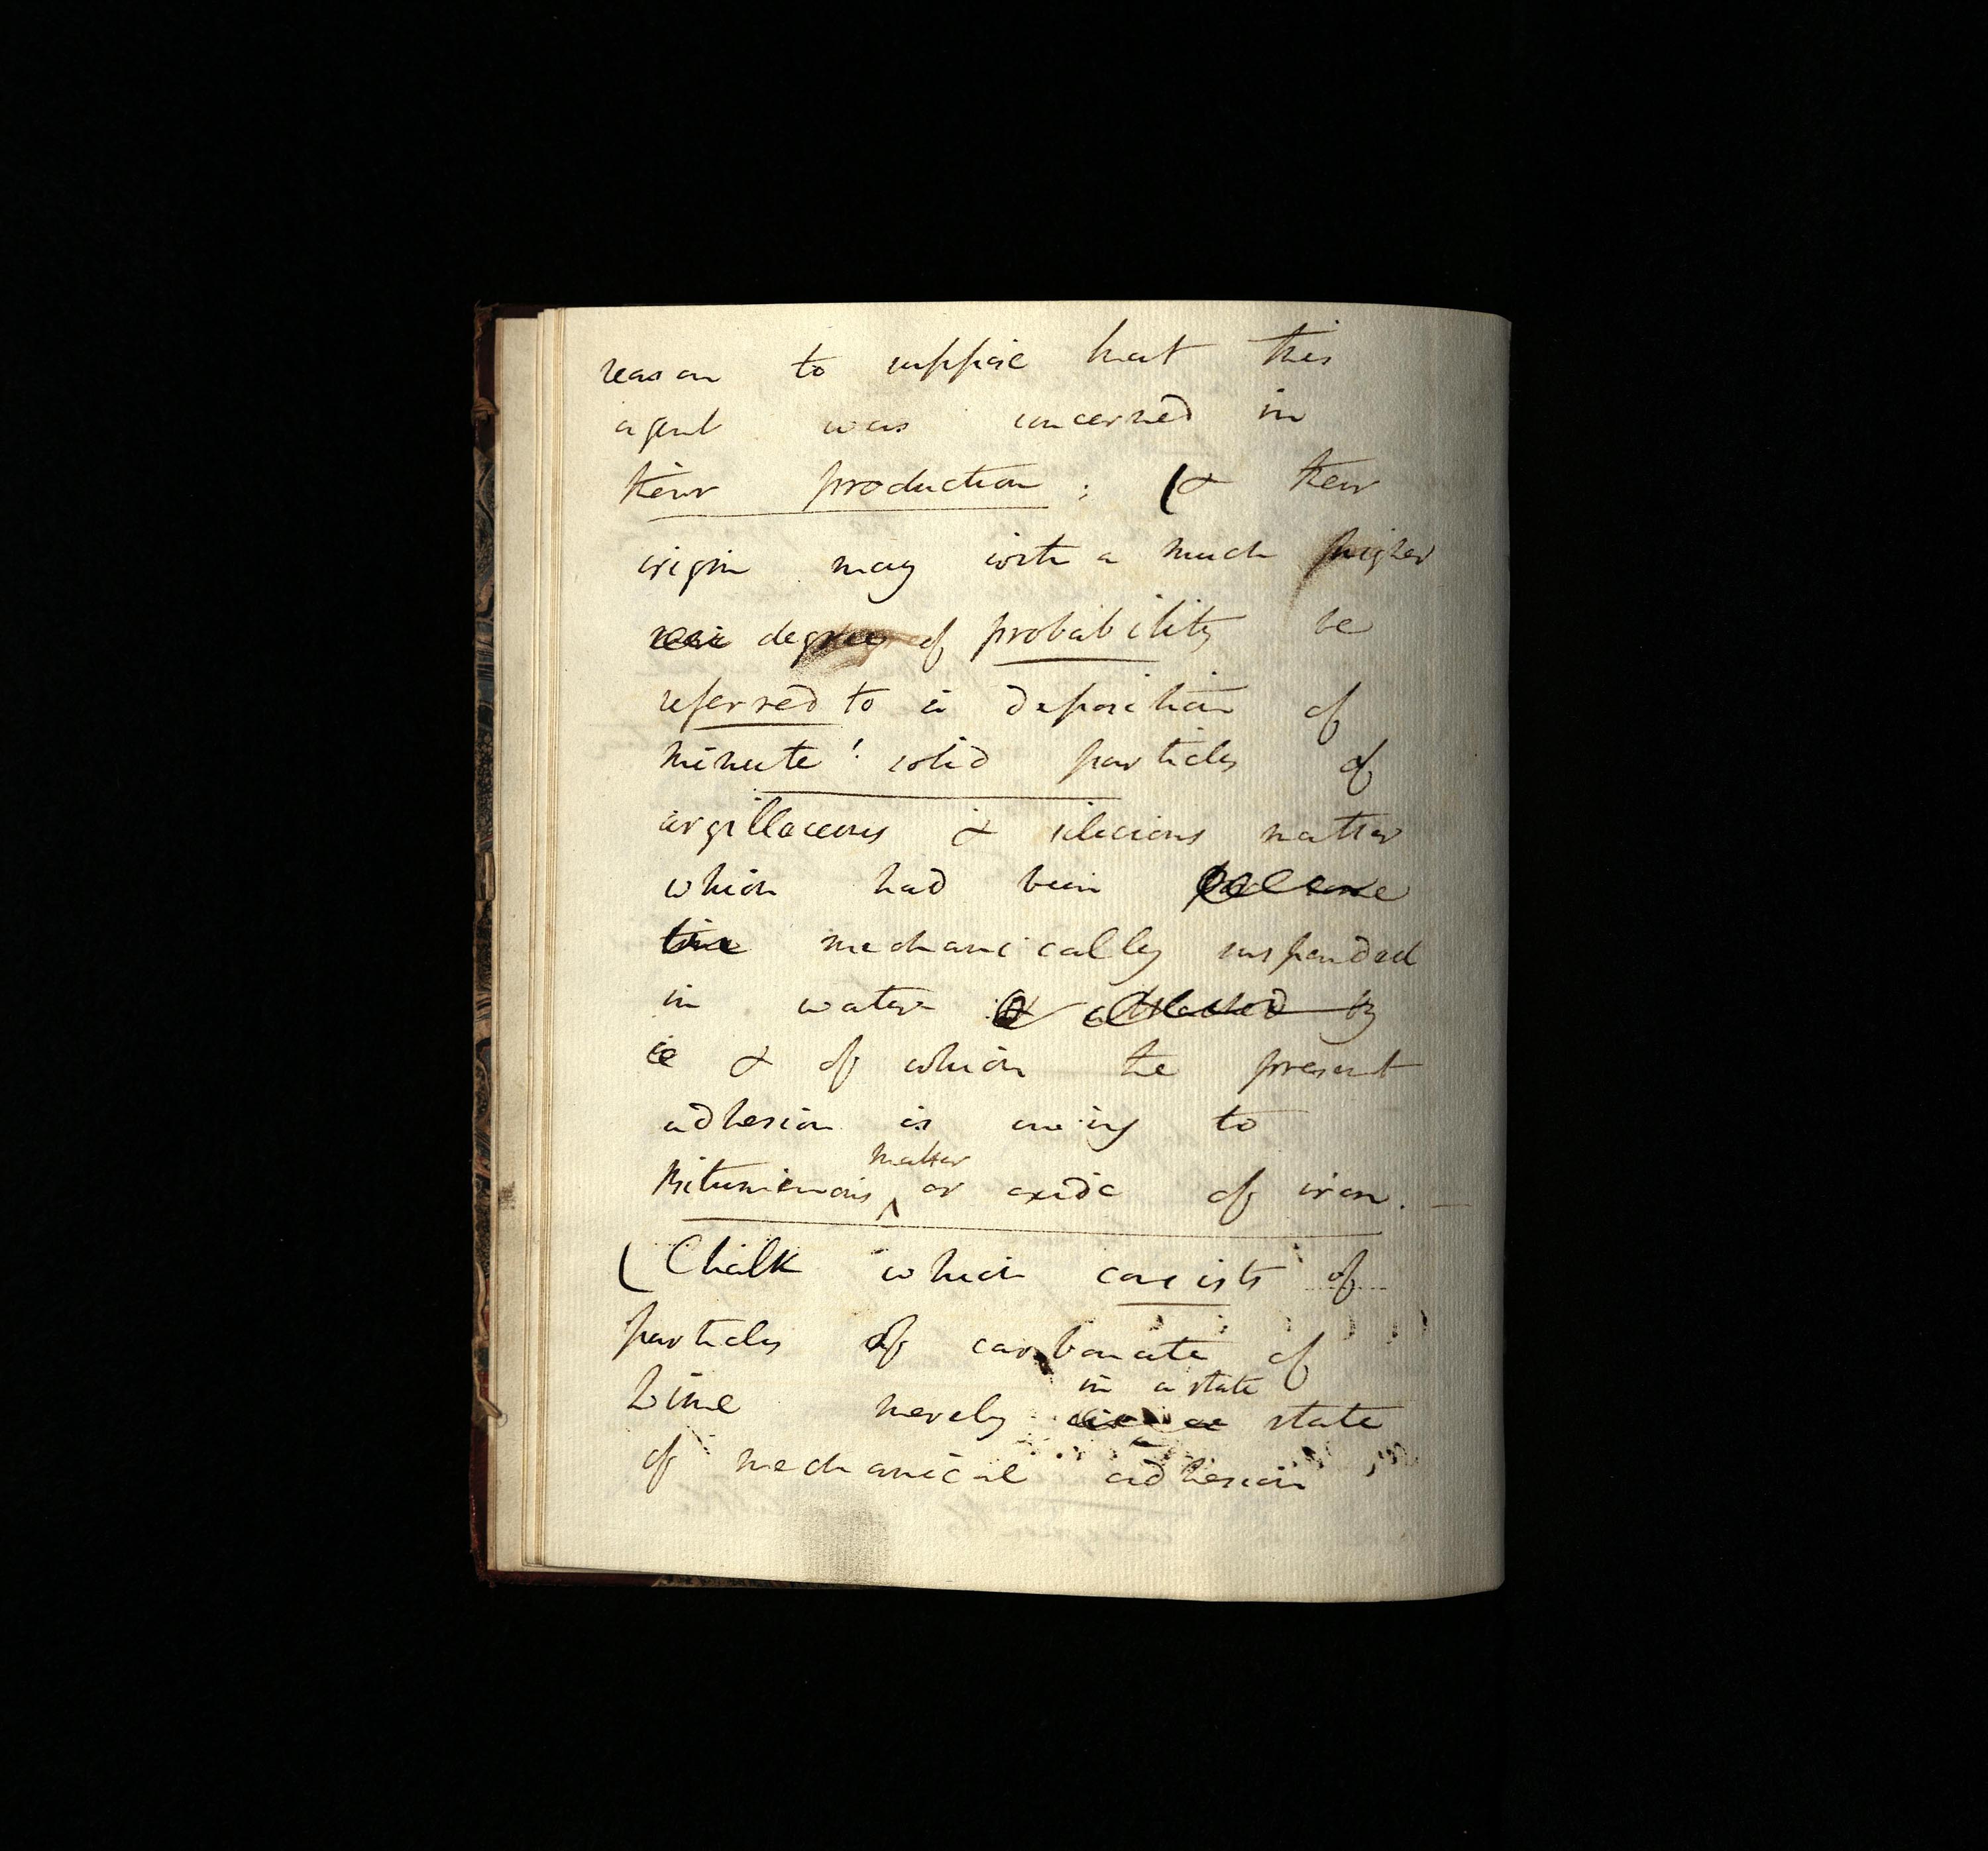 reason to suppose that this
agent was concerned in
their production ; (& their
origin may with a much higher
degree of probability be
referred to a deposition of
minute ! solid particles of
argillaceous & silicious matter
which had been
mechanically suspended
in water & attached by
& of which the present
adhesion is owing to
matter
Bituminous ^ or oxide of iron. —
( Chalk which consists of
particles of carbonate of
in a state
Lime merely in a state
of mechanical adhesion ;